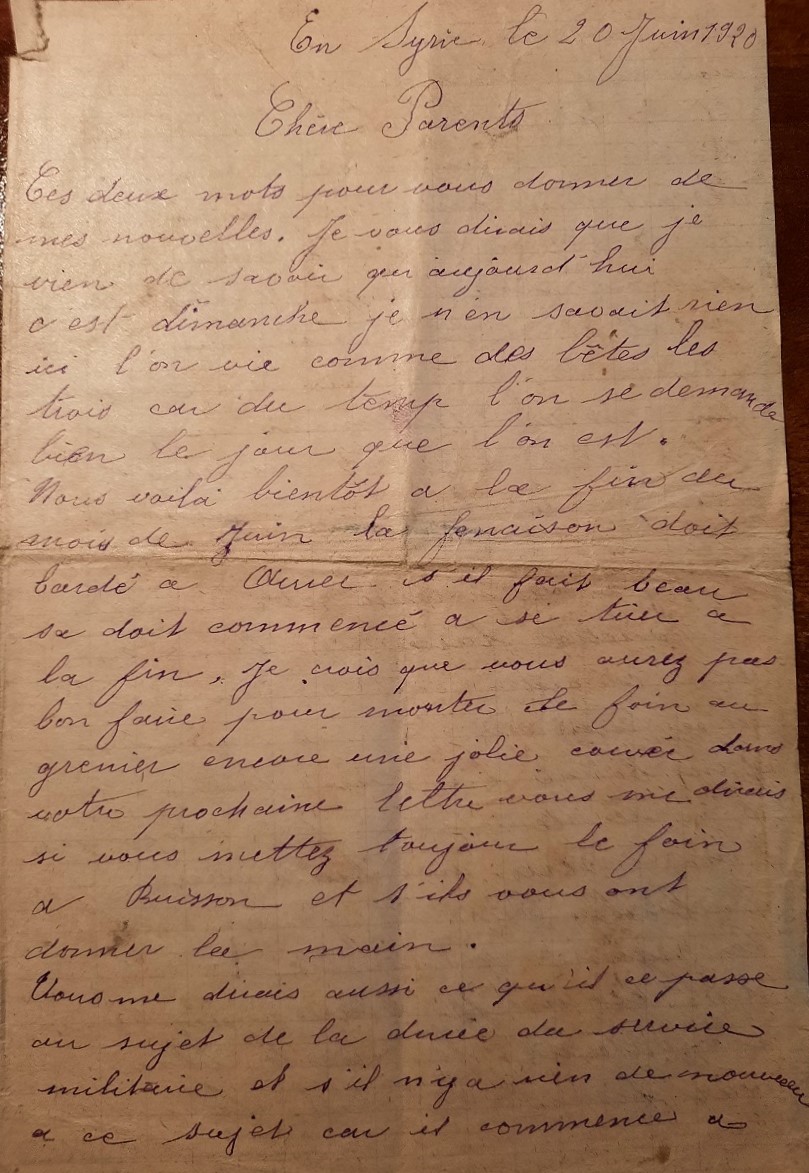 En Syrie le 20 Juin 1920
Chère Parents
Ces deux mots pour vous donner de
mes nouvelles. Je vous dirais que je
vien de savoir qu'aujourd'hui
c'est dimanche je n'en savait rien
ici l'on vie comme des bêtes les
trois car du temp l'on se demande
bien le jour que l'on est.
Nous voilà bientôt a la fin du
mois de Juin la fenaison doit
bardé a s'il fait beau
sa doit commencé a se tirer a
la fin. Je crois que vous aurez pas
bon faire pour monter le foin au
grenier encore une jolie corvée dans
votre prochaine lettre vous me dirais
si vous mettez toujour le foin
a Buisson et s'ils vous ont
donner la main.
Vous me dirais aussi ce qu'il ce passe
au sujet de la durée du service
militaire et s'il n'y a rien de nouveau
a ce sujet car il commence a